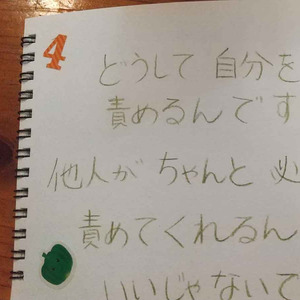 4
どうして 自分を
責めるんです
他人が ちゃんと 必
責めてくれるん
いいじゃないで